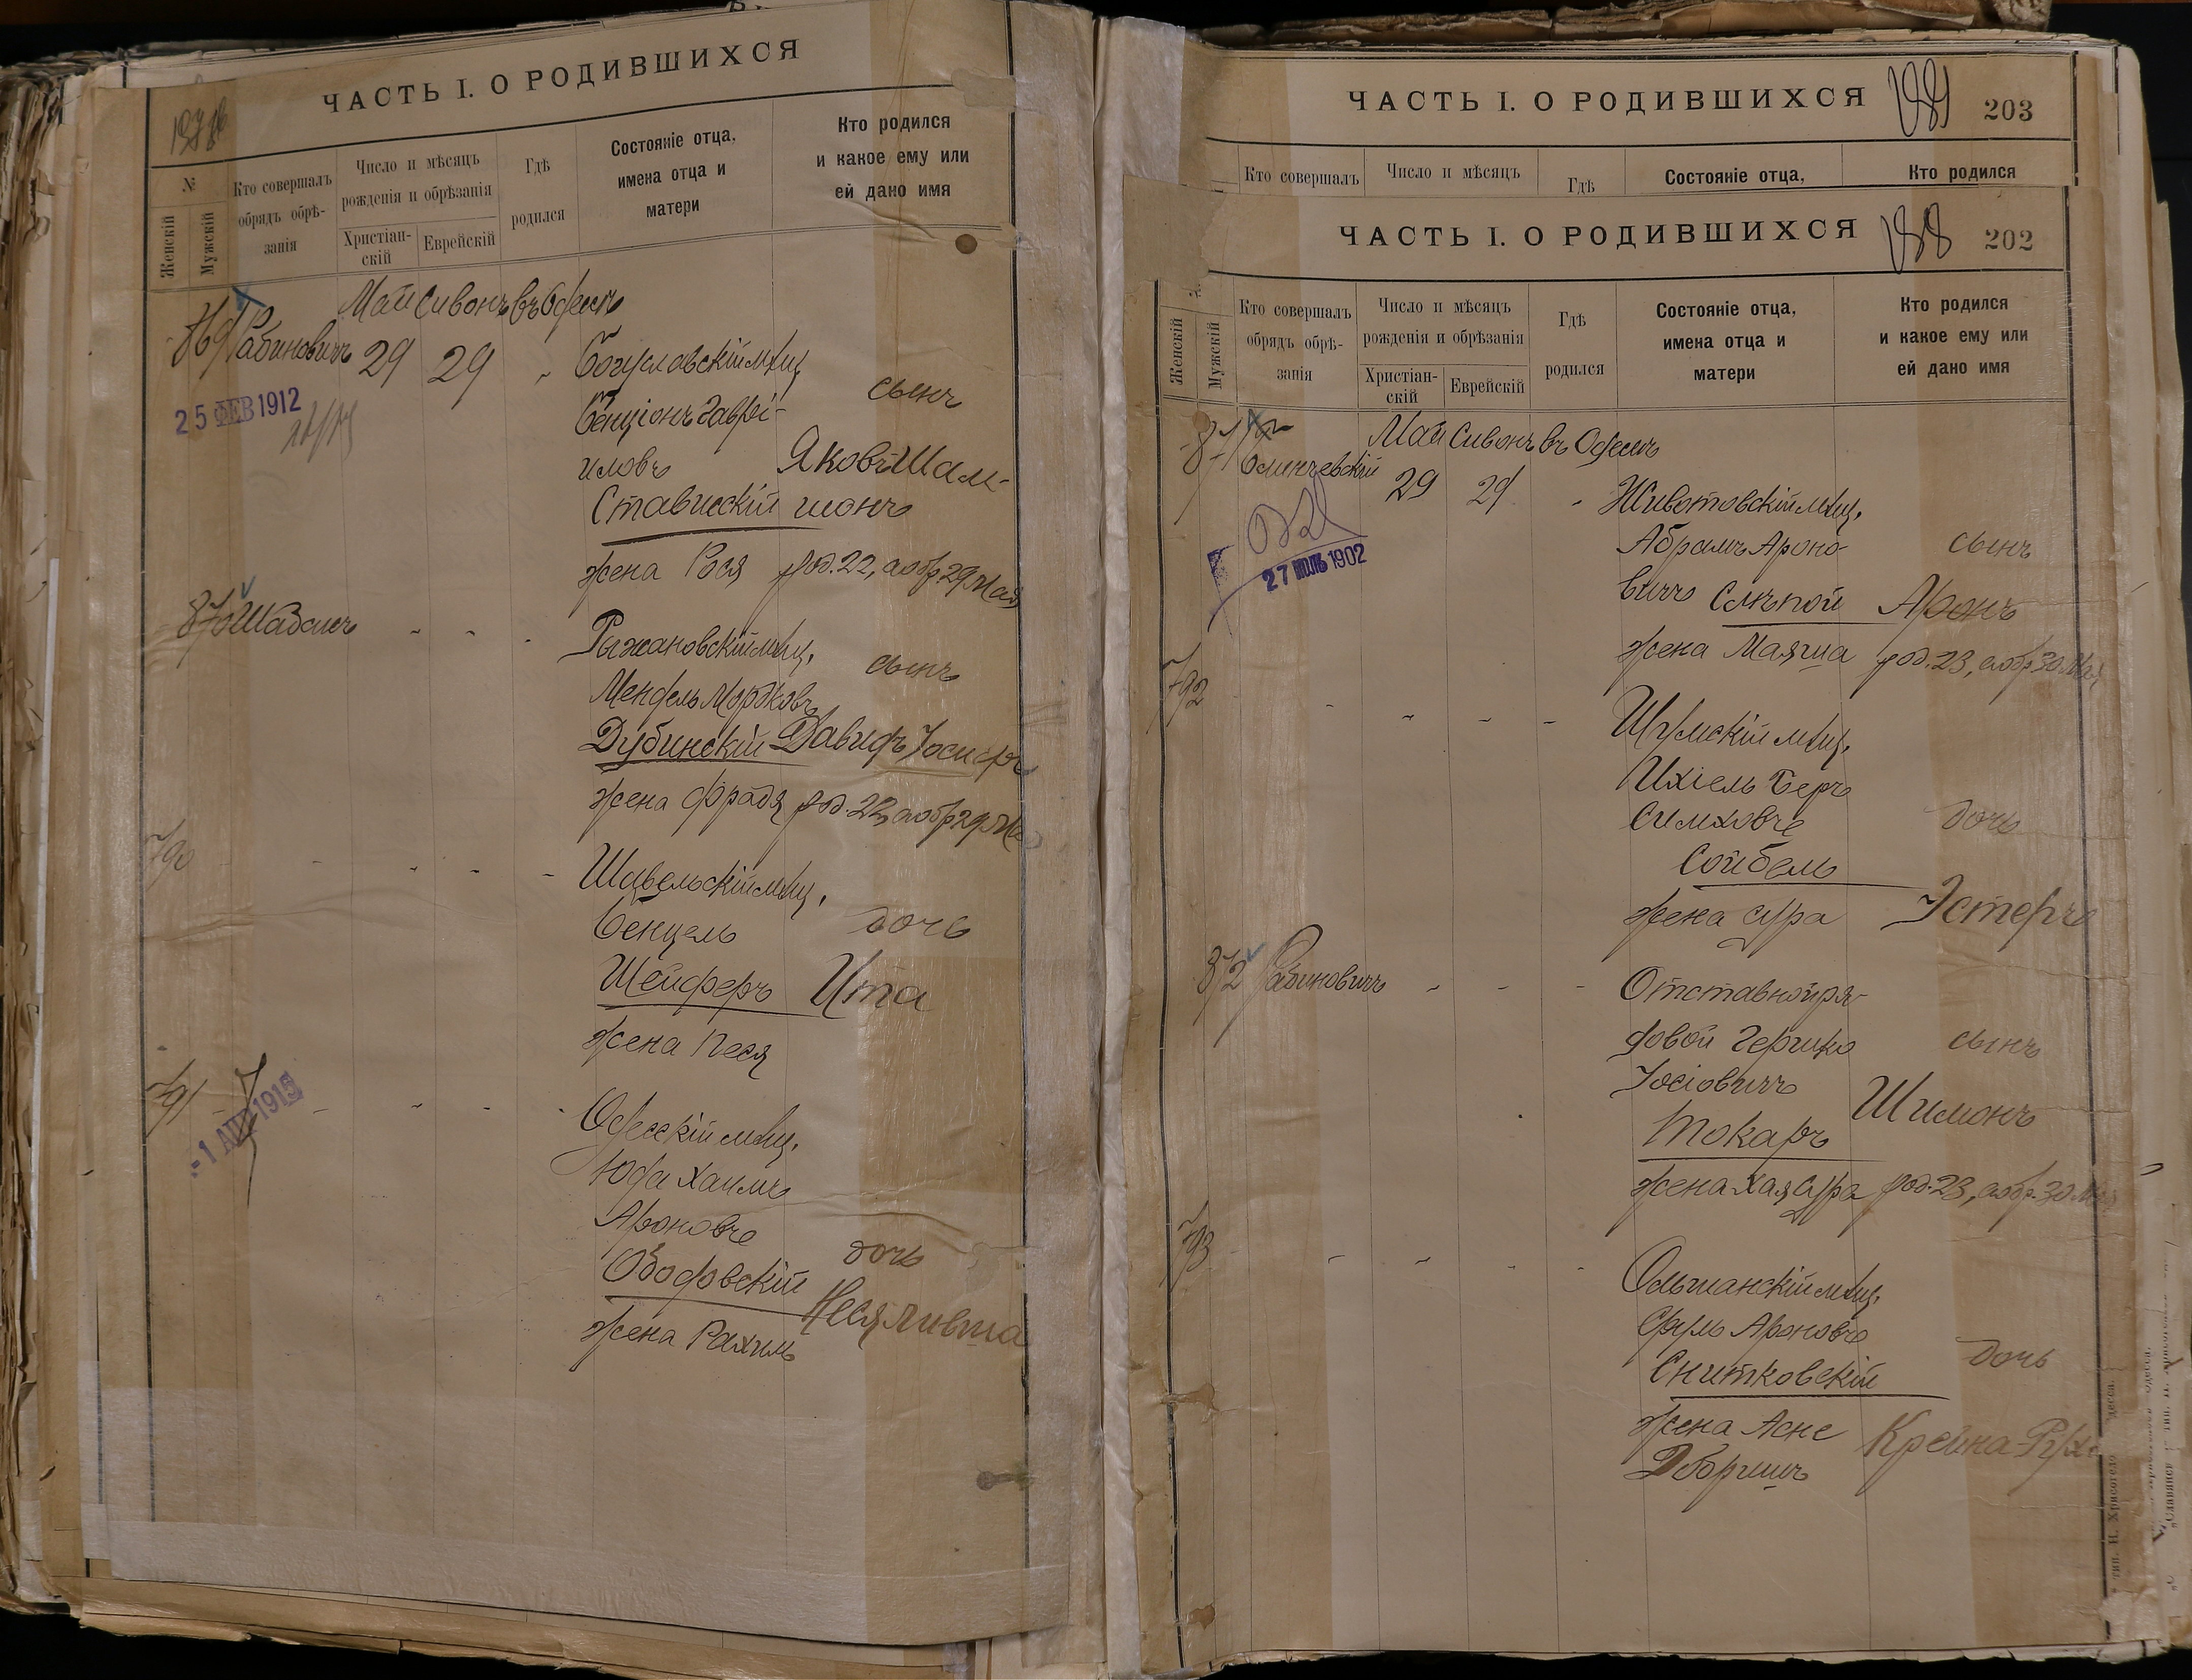 ЧАСТЬ I. О РОДИВШИХСЯ
№
Женскій
Мужскій
Кто совершалъ
обрядъ обрѣ-
занія
Число и мѣсяцъ
рожденія и обрѣзанія
Христіан-
скій
Еврейскій
Гдѣ
родился
Состояніе отца,
имена отца и
матери
Кто родился
и какое ему или
ей дано имя
Май Сивонъ въ Одессѣ
869 Рабиновичъ 29 29 Богуславскій мѣщ.
25 ФЕВ 1912
сынъ
Бенціонъ Гаврі-
иловъ Яковъ Шам-
Ставискій шонъ
жена Рося род. 22, а обр. 29 Мая
870 Шаданъ
Рыжановскій мѣщ.
сынъ
Мендель Мордковъ
Дубинскій Давидъ Іосифъ
жена Фрадя род. 22 а обр 29 Мая
790
Шавельскій мѣщ.
Бенцель дочь
Шейферъ Ита
жена Песя
791
-1 АПР 1915
Одесскій мѣщ.
Юда Хаимъ
Ароновъ
дочь
Ободовскій
Неся Ривша
жена Рахиль
ЧАСТЬ I. О РОДИВШИХСЯ 189 203
Кто совершалъ
Число и мѣсяцъ
Гдѣ
Состояніе отца,
Кто родился
ЧАСТЬ I. О РОДИВШИХСЯ 188 202
Женскій
Мужскій
Кто совершалъ
обрядъ обрѣ-
занія
Число и мѣсяцъ
рожденія и обрѣзанія
Христіан-
скій
Еврейскій
Гдѣ
родился
Состояніе отца,
имена отца и
матери
Кто родился
и какое ему или
ей дано имя
Май Сивонъ въ Одессѣ
871 29 29 Животовскій мѣщ.
27 1902
Абрамъ Ароно- сынъ
вичъ Слѣпой Аронъ
жена Маяша род. 23, а обр. 30 Мая
792
Шумскій мѣщ.
Ихіель Беръ
Симховъ дочь
Сойбель
жена Сура Эстеръ
872 Рабиновичъ
Отставной ря-
довой Гершко сынъ
Іосіовичъ
Шимонъ
Токаръ
жена Хая Сура род. 23, а обр. 30 Мая
793
Ольшанскій мѣщ.
Сруль Ароновъ
дочь
Снитковскій
жена Асне Крейна-
Добришъ